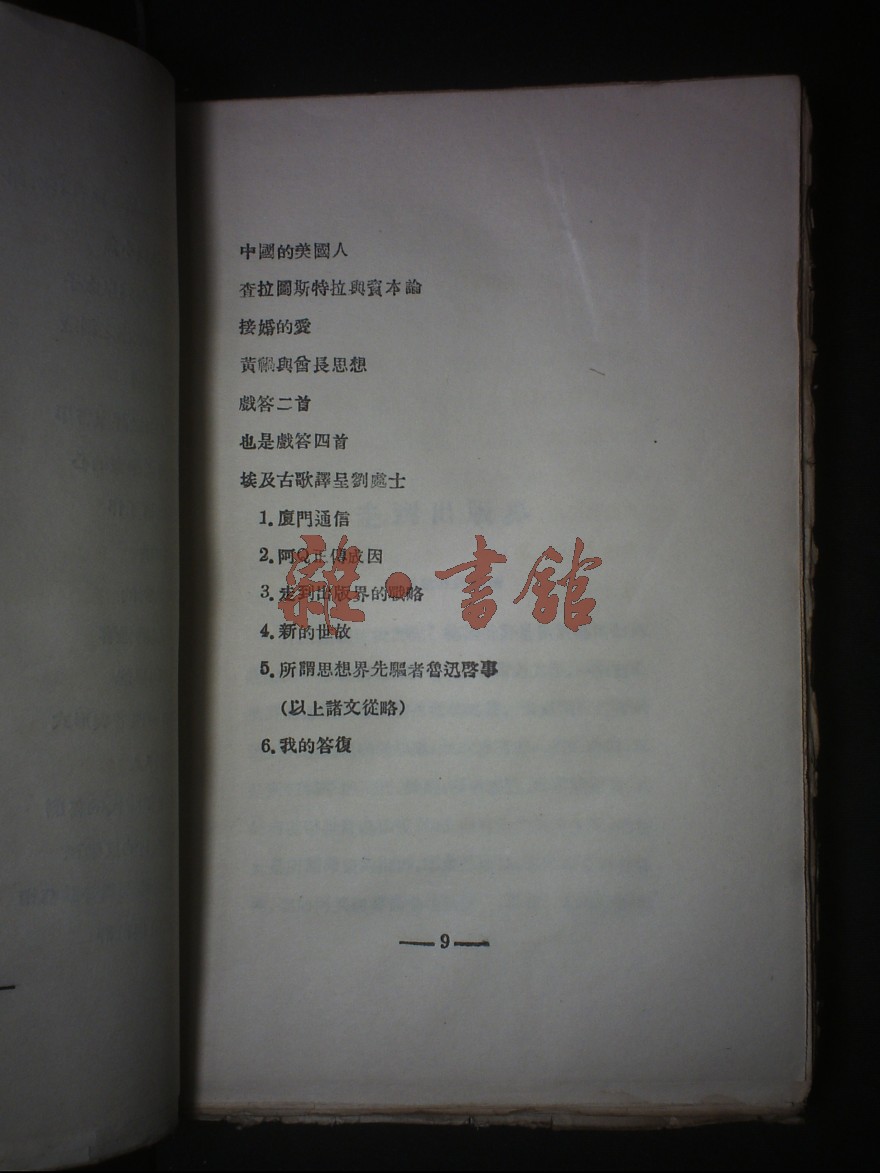 中國的美國人
查拉圖斯特拉與資本論
接婚的愛
黃幗與酋長思想
戲答二首
也是戲答四首
埃及古歌譯呈劉處士
1.廈門通信
2.阿Q正傳成因
3.走到出版界的戰略
4.新的世故
5.所謂思想界先驅者魯迅啓事
(以上諸文從略)
6.我的答復
雜·書館
9